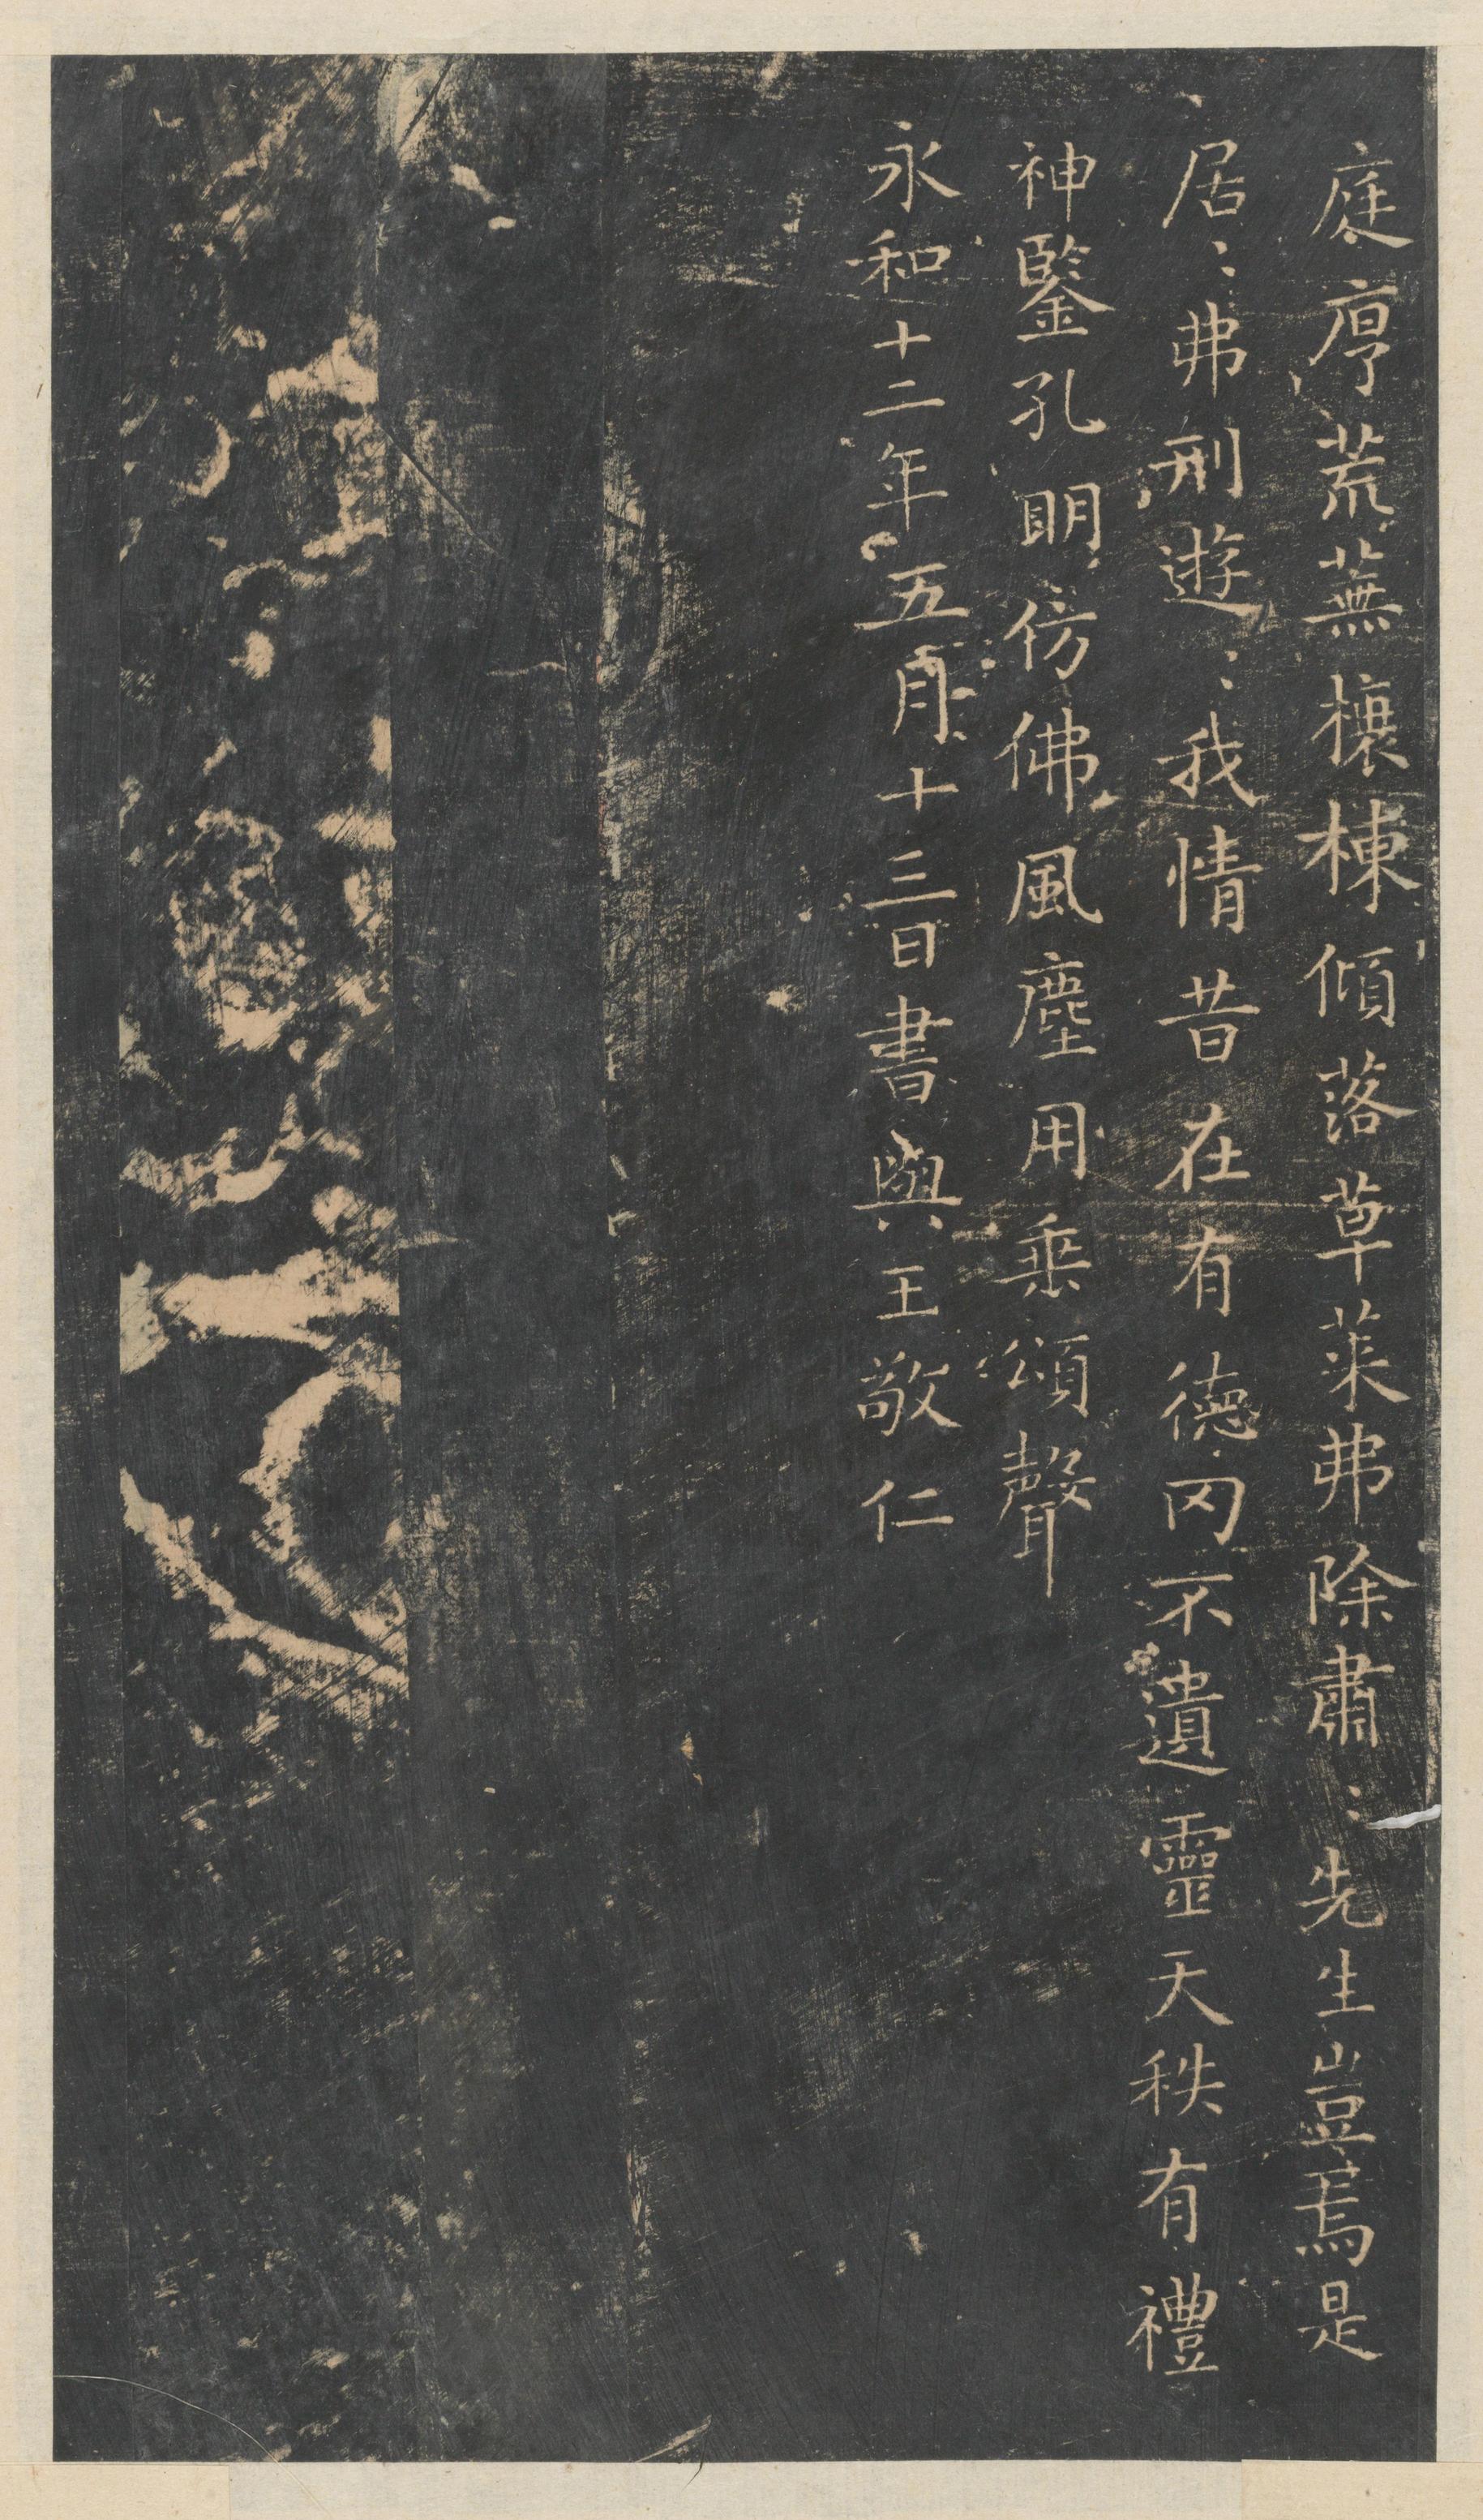 庭序荒蕪榱棟傾落草萊弗除肅〻先生豈焉是
居〻弗刑遊〻我情昔在有德罔不遺靈天秩有禮
神鑒孔明仿佛風塵用垂頌聲
永和十二年五月十三日書與王敬仁